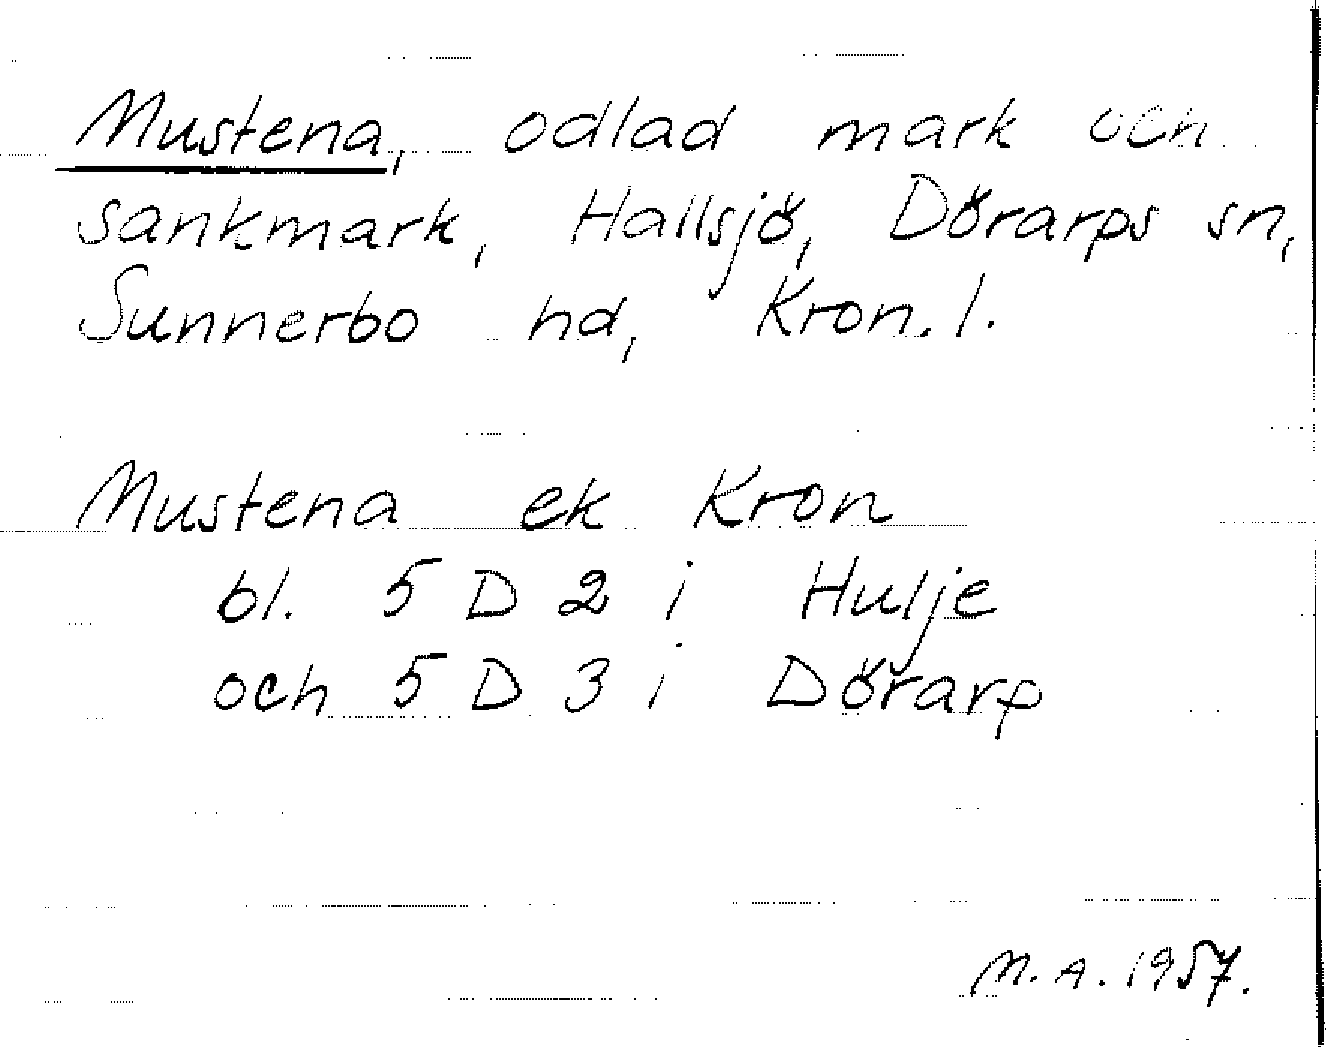 Mustena, odlad mark och
sankmark, Hallsjö, Dörarps sn,
Sunnerbo hd, Kron. l.
Mustena ek Kron
bl. 5 D 2 i Hulje
och 5 D 3 i Dörarp
M. A. 1957.